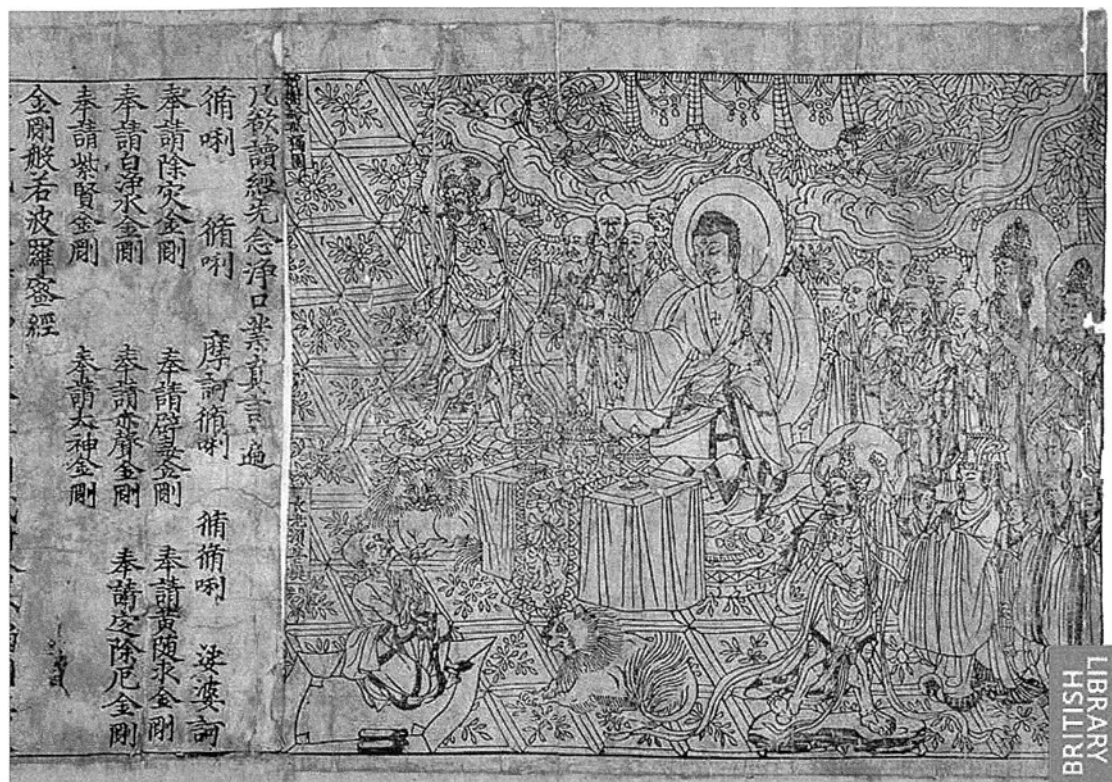 凡欲讀經先念淨口業真言一遍
脩唎 脩唎 摩訶脩唎 脩脩唎 娑婆訶
奉請除灾金剛 奉請辟毒金剛 奉請黃随求金剛
奉請白淨水金剛 奉請赤聲金剛 奉請定除厄金剛
奉請紫賢金剛 奉請大神金剛
金剛般若波羅蜜經
BRITISH
LIBRARY